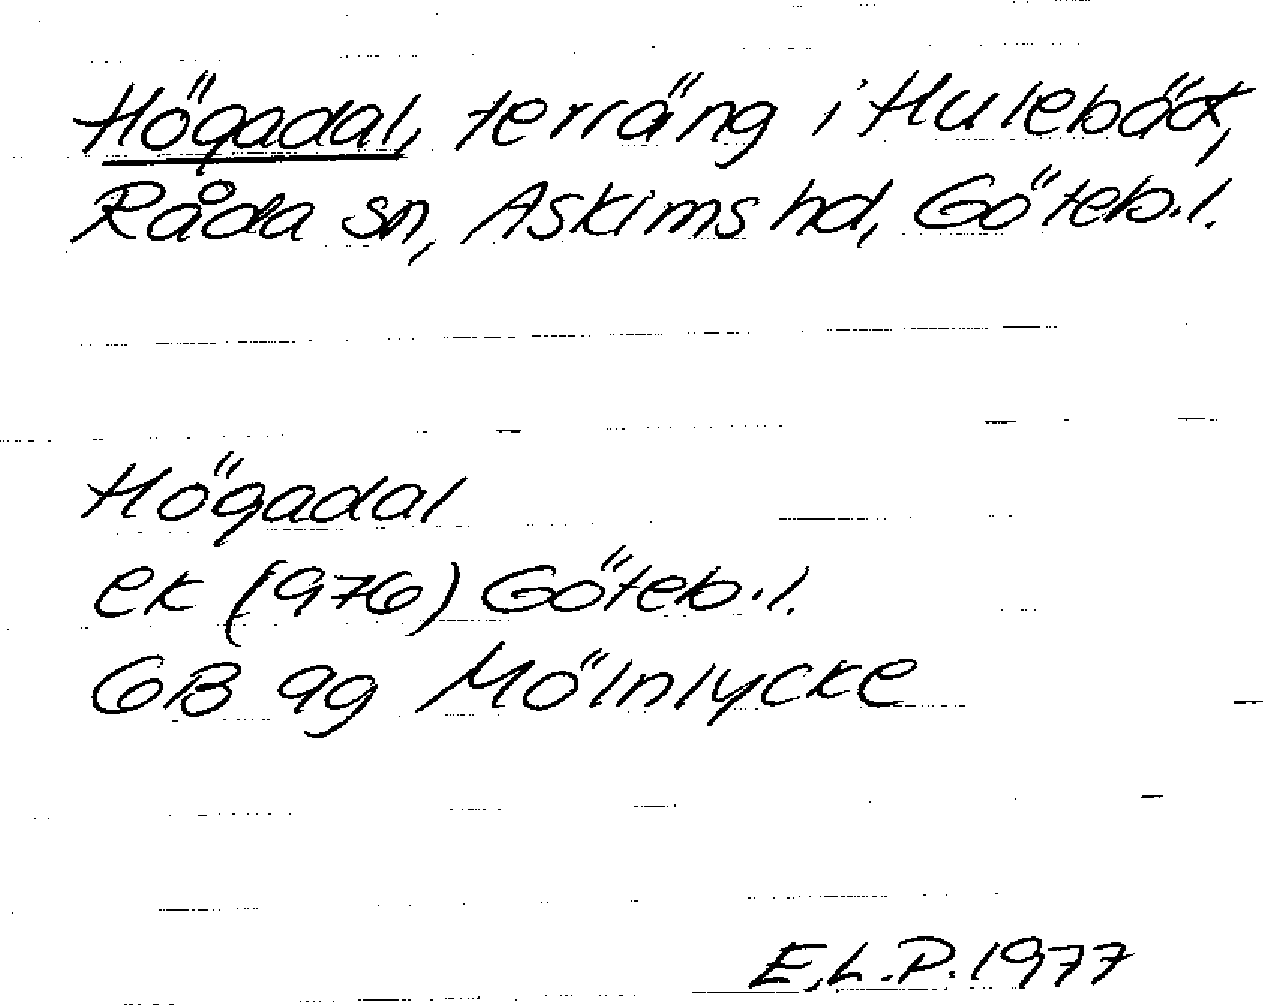 Högadal, terräng i Hulebäck,
Råda sn, Askims hd, Göteb.l.
Högadal
ek (976) Göteb.l.
6B 9g Mölnlycke
E.L.P. 1977